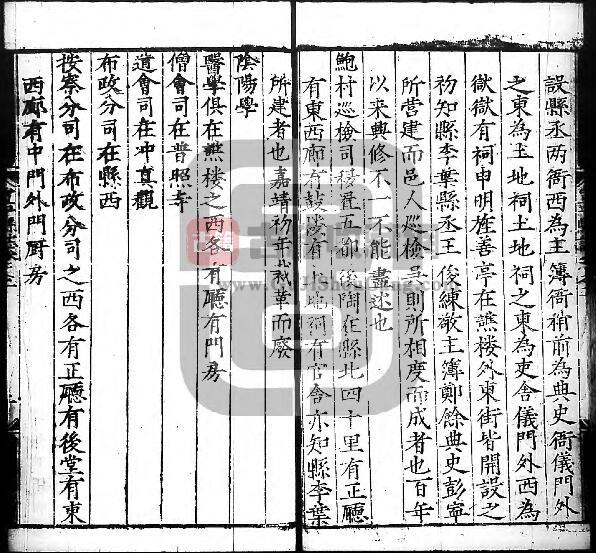 設縣丞两衙西為主簿衙稍前為典史衙儀門外
之東為土地祠土地祠之東為吏舍儀門外西為
獄獄有祠申明旌善亭在譙楼外東街皆開設之
初知縣李葉縣丞王俊練敬主簿鄭餘典史彭寧
所营建而邑人巡檢吳則所相度而成者也百年
以来興修不一不能盡述也
鮑村巡檢司後陶在縣北四十里有正廳
有東西廊有鼓楼有土地祠有官舍亦知縣李葉
所建者也嘉靖初年裁革而廢
陰陽學
醫學俱在譙楼之西各有廳有門房
僧會司在普照寺
道會司在冲真觀
布政分司在縣西
按察分司在布政分司之西各有正廳有後堂有東
西廊有中門外門厨房